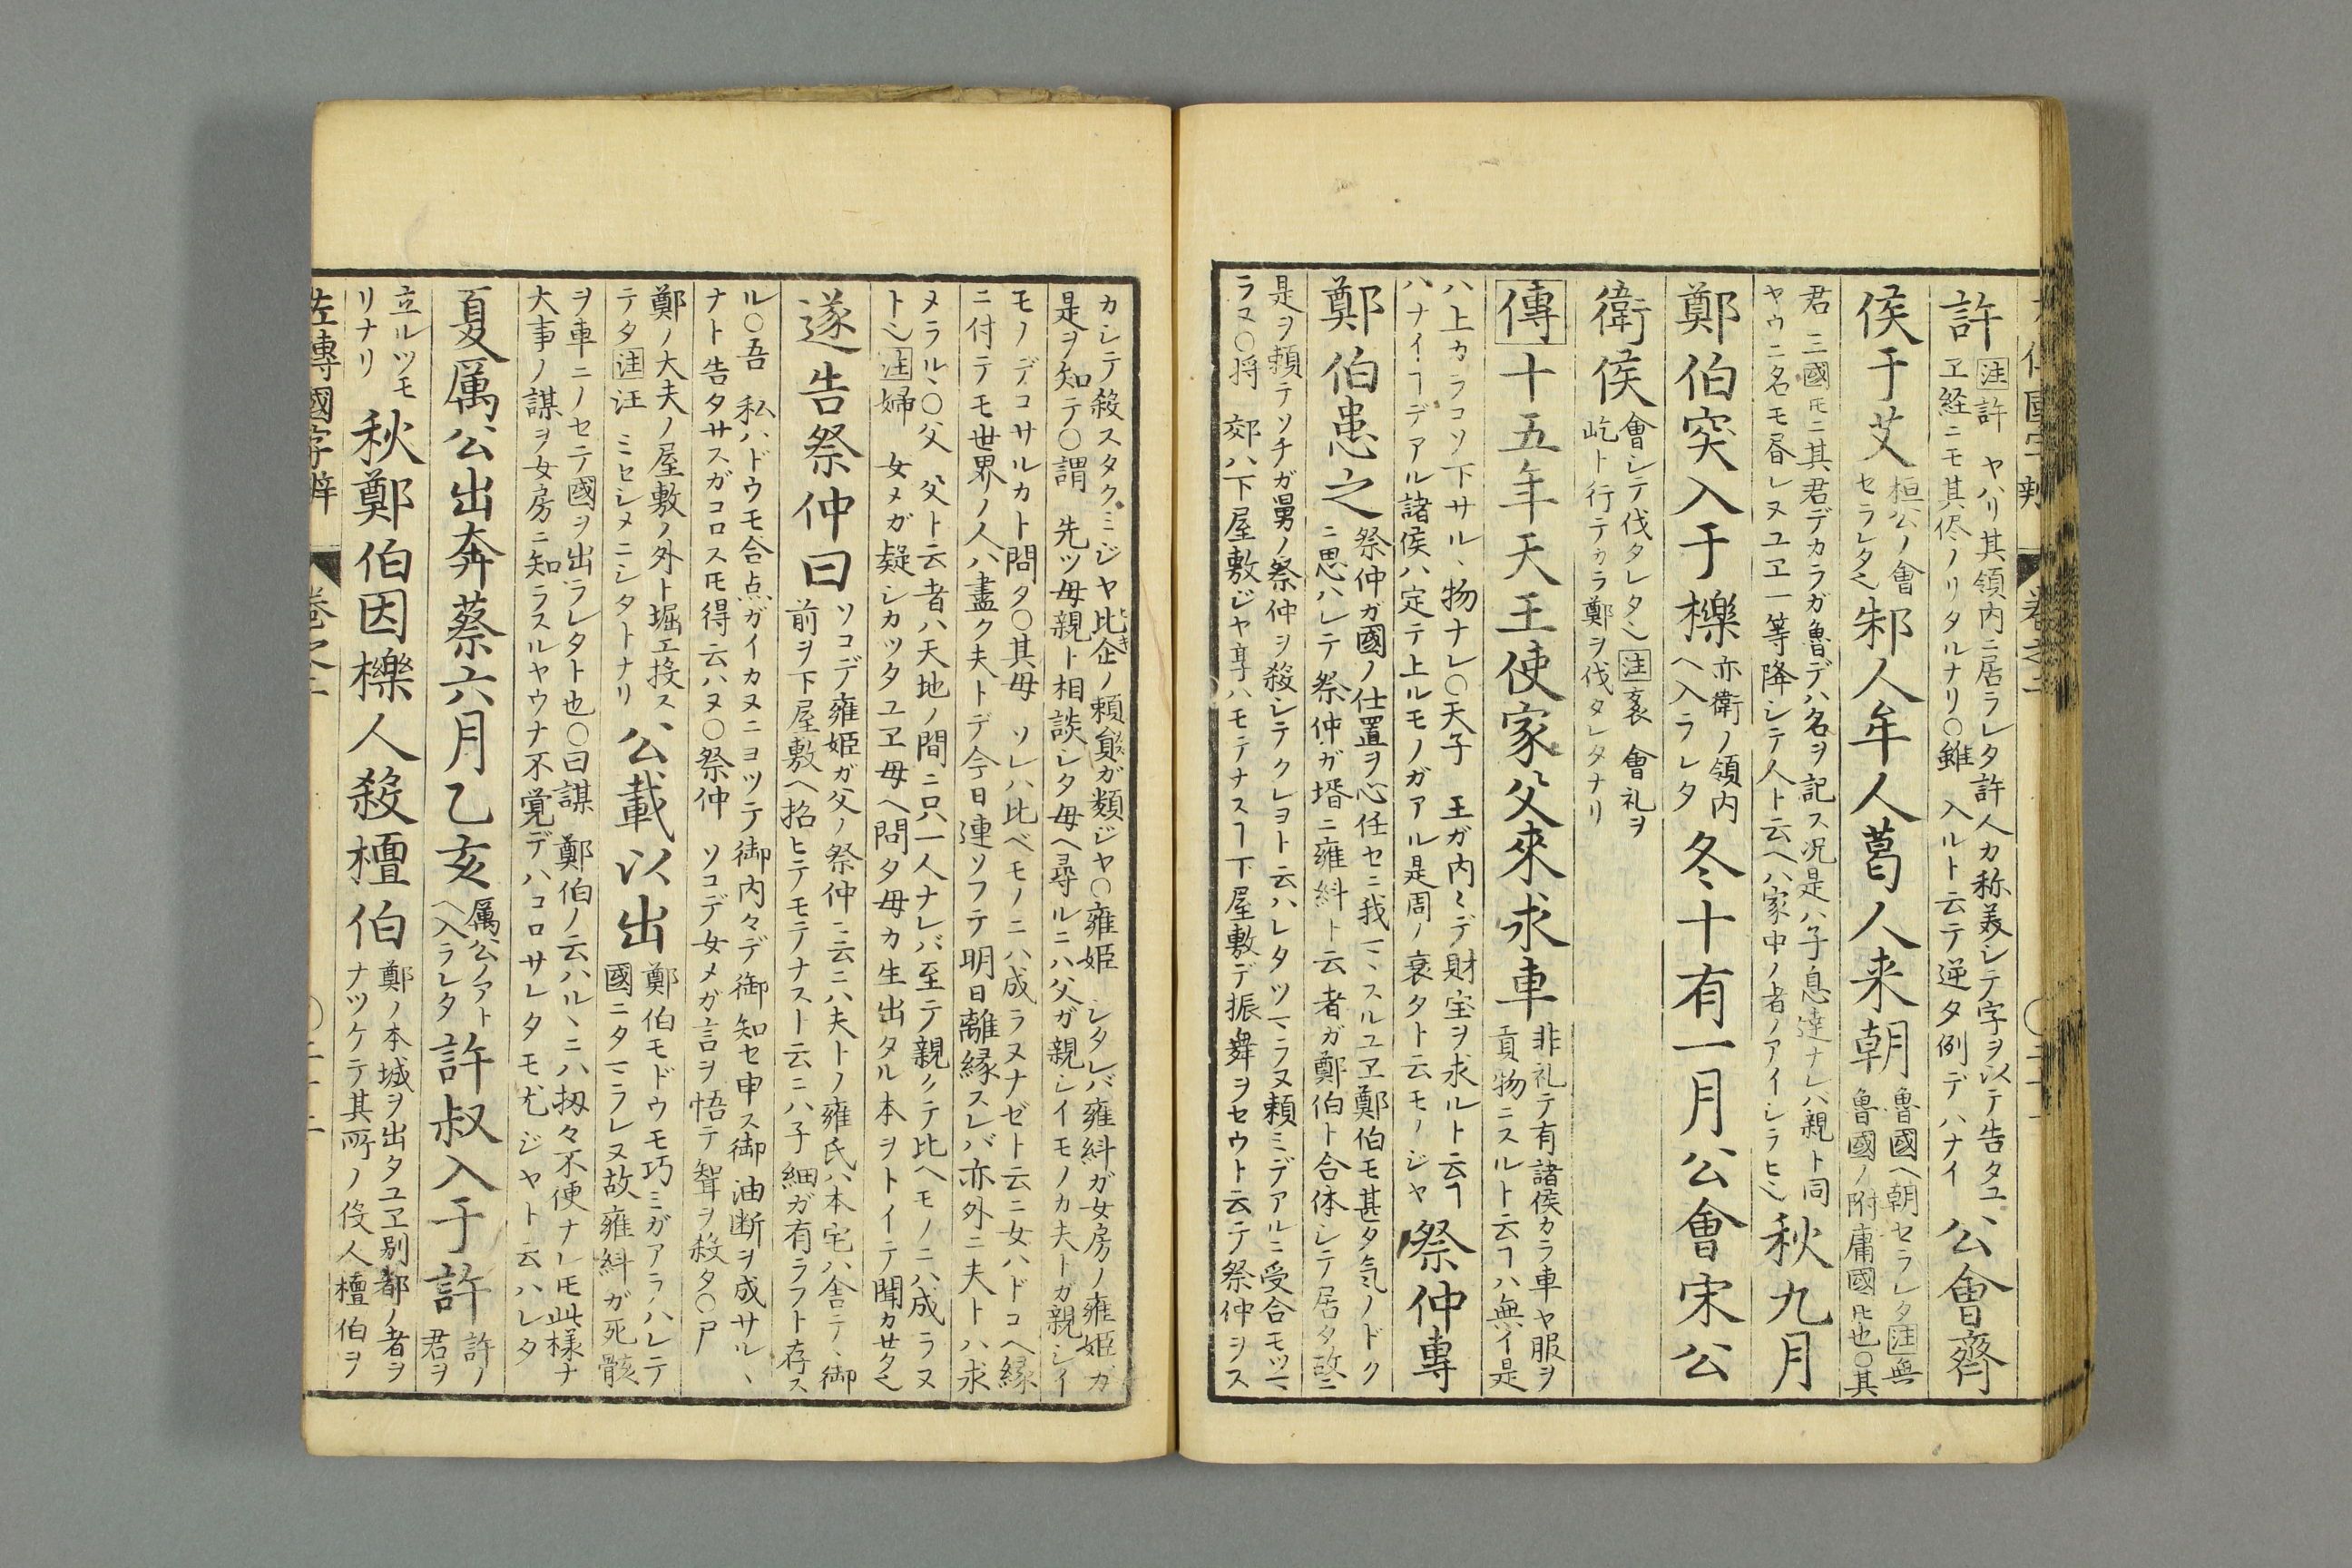 許
注許 ヤハリ其領内ニ居ラレタ許人カ称美シテ字ヲ以テ告タユ
ヱ経ニモ其侭ノリタルナリ〇雖 入ルト云テ逆タ例デハナイ
公會齊
侯于艾
桓公ノ會
セラレタ也
邾人牟人葛人来朝
魯國ヘ朝セラレタ注無
魯國ノ附庸國𪜈也〇其
君 三國𪜈ニ其君デカラガ魯デハ名ヲ記ス况是ハ子息達ナレハ親ト同
ヤウニ名モ昏レヌユヱ一等降シテ人ト云ヘハ家中ノ者ノアイシラヒ也
秋九月
鄭伯突入于櫟
亦衛ノ領内
ヘ入ラレタ
冬十有一月公會宋公
衛侯
會シテ伐タレタ也注袲 會礼ヲ
屹ト行テカラ鄭ヲ伐タレタナリ
傳十五年天王使家父來求車
非礼テ有諸侯カラ車ヤ服ヲ
貢物ニスルト云ヿハ無イ是
ハ上カラコソ下サルヽ物ナレ〇天子 王ガ内〻デ財宝ヲ求ルト云ヿ
ハナイヿデアル諸侯ハ定テ上ルモノガアル是周ノ衰タト云モノジヤ
祭仲專
鄭伯患之
祭仲ガ國ノ仕置ヲ心任セニ我マヽスルユヱ鄭伯モ甚タ気ノドク
ニ思ハレテ祭仲ガ壻ニ雍糾ト云者ガ鄭伯ト合体シテ居タ故ニ
是ヲ頼テソチガ舅ノ祭仲ヲ殺シテクレヨト云ハレタツマラヌ頼ミデアルニ受合モツマ
ラヌ〇将 郊ハ下屋敷ジヤ享ハモテナスヿ下屋敷デ振舞ヲセウト云テ祭仲ヲス
カシテ殺スタクミジヤ比企ノ頼貟ガ類ジヤ〇雍姫 シタレバ雍糾ガ女房ノ雍姫ガ
是ヲ知テ〇謂 先ツ母親ト相談レタ母ヘ尋ルニハ父ガ親シイモノカ夫トガ親シイ
モノデコサルカト問タ〇其母 ソレハ比ベモノニハ成ラヌナゼト云ニ女ハドコヘ縁
ニ付テモ世界ノ人ハ盡ク夫トデ今日連ソフテ明日離縁スレバ亦外ニ夫トハ求
メラルヽ〇父 父ト云者ハ天地ノ間ニ只一人ナレバ至テ親クテ比ヘモノニハ成ラヌ
ト也注婦 女メガ疑シカツタユヱ母ヘ問タ母カ生出タル本ヲトイテ聞カせタ也
遂告祭仲曰
ソコデ雍姫ガ父ノ祭仲ニ云ニハ夫トノ雍氏ハ本宅ハ舎テヽ御
前ヲ下屋敷ヘ招ヒテモテナスト云ニハ子細ガ有ラフト存ス
ル〇吾 私ハドウモ合点ガイカヌニヨツテ御内々デ御知セ申ス御油断ヲ成サルヽ
ナト告タサスガコロス𪜈得云ハヌ〇祭仲 ソコデ女メガ言ヲ悟テ聟ヲ殺タ〇尸
鄭ノ大夫ノ屋敷ノ外ト堀エ投ス
テタ注汪 ミセシメニシタトナリ
公載以出
鄭伯モドウモ巧ミガアラハレテ
國ニタマラレヌ故雍糾ガ死骸
ヲ車ニノセテ國ヲ出ラレタト也〇曰謀 鄭伯ノ云ハルヽニハ扨々不便ナレ𪜈此様ナ
大事ノ謀ヲ女房ニ知ラスルヤウナ不覚デハコロサレタモ尤ジヤト云ハレタ
夏厲公出奔蔡六月乙亥
厲公ノアト
ヘ入ラレタ
許叔入于許
許ノ
君ヲ
立ルツモ
リナリ
秋鄭伯因櫟人殺檀伯
鄭ノ本城ヲ出タユヱ別都ノ者ヲ
ナツケテ其所ノ役人檀伯ヲ
左傳國字辨